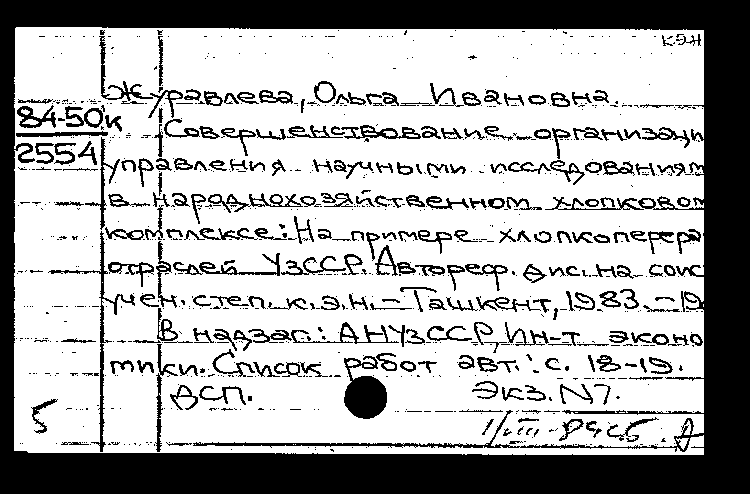 КЭН
Журавлева, Ольга Ивановна.
84-50к
2554
Совершенствование организаци
управления научными исследованиям
в народнохозяйственном хлопковом
комплексе: На примере хлопкоперера
отраслей УзССР. Автореф. дис. на соис
учен. степ. к.э.н. - Ташкент, 1983. - 19
В надзаг.: АН УзССР, Ин-т эконо
мики. Список работ авт.: с. 18-19.
ДСП. Экз. N7.
5